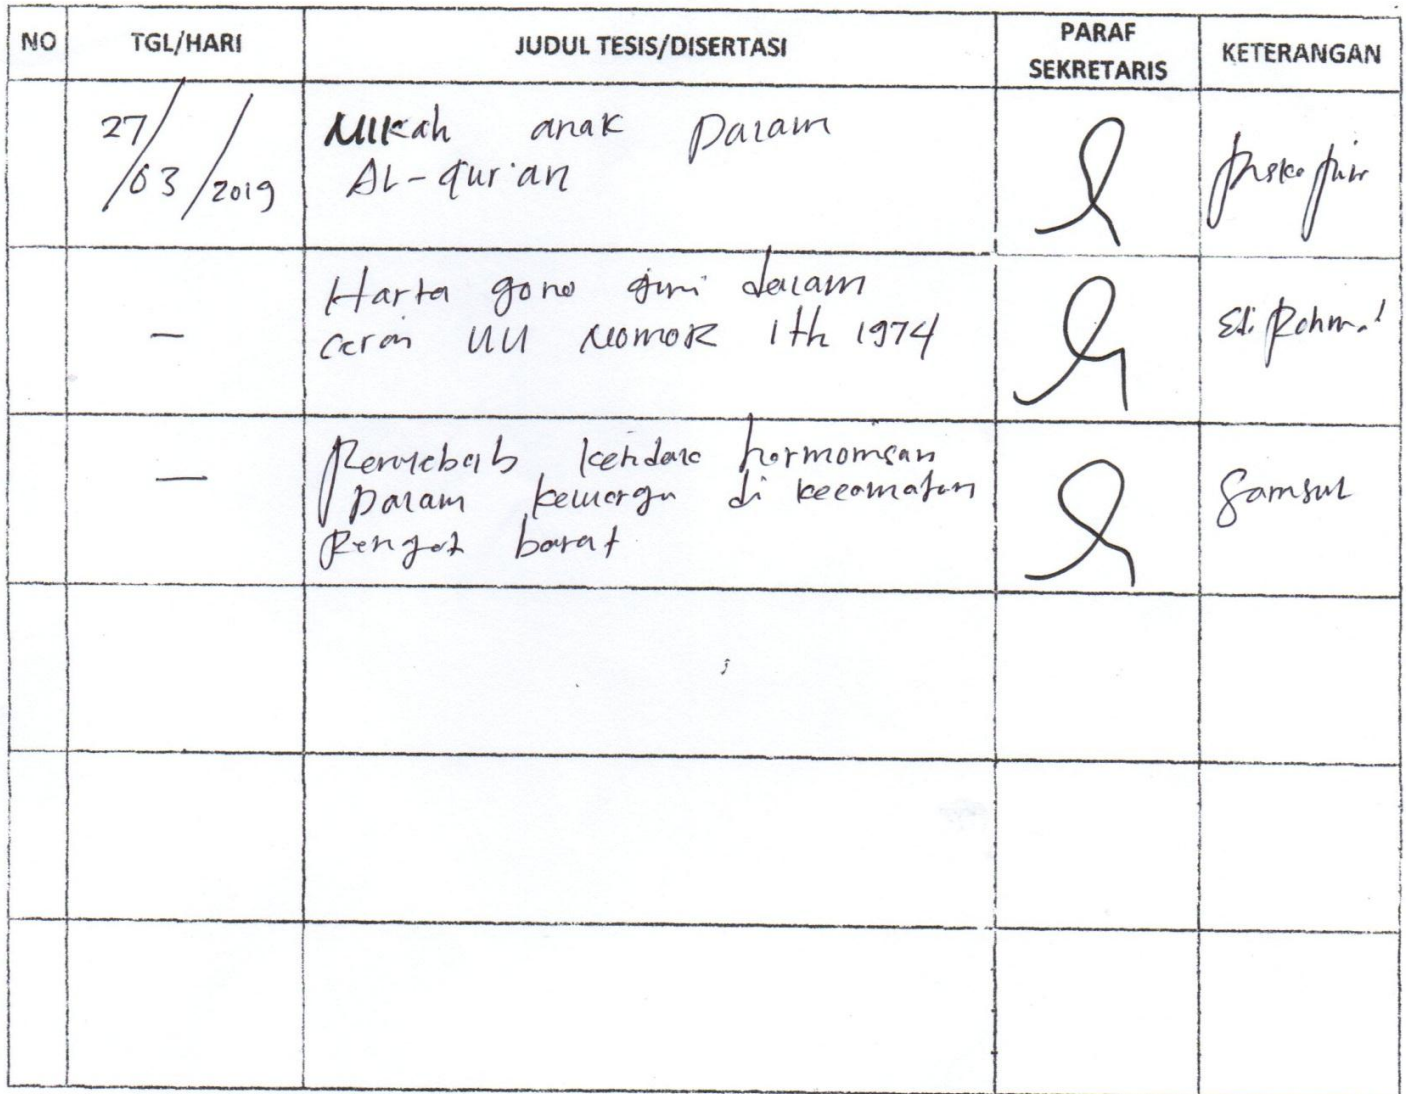 NO TGL/HARI JUDUL TESIS/DISERTASI PARAF SEKRETARIS KETERANGAN
27/03/2019 Nikah anak Dalam
Al-qur'an
— Harta gono gini dalam
UU Nomor 1 th 1974
Edi Rohm
— Penyebab harmonisan
Dalam keluarga di kecamatan
Rengat barat
Samsul